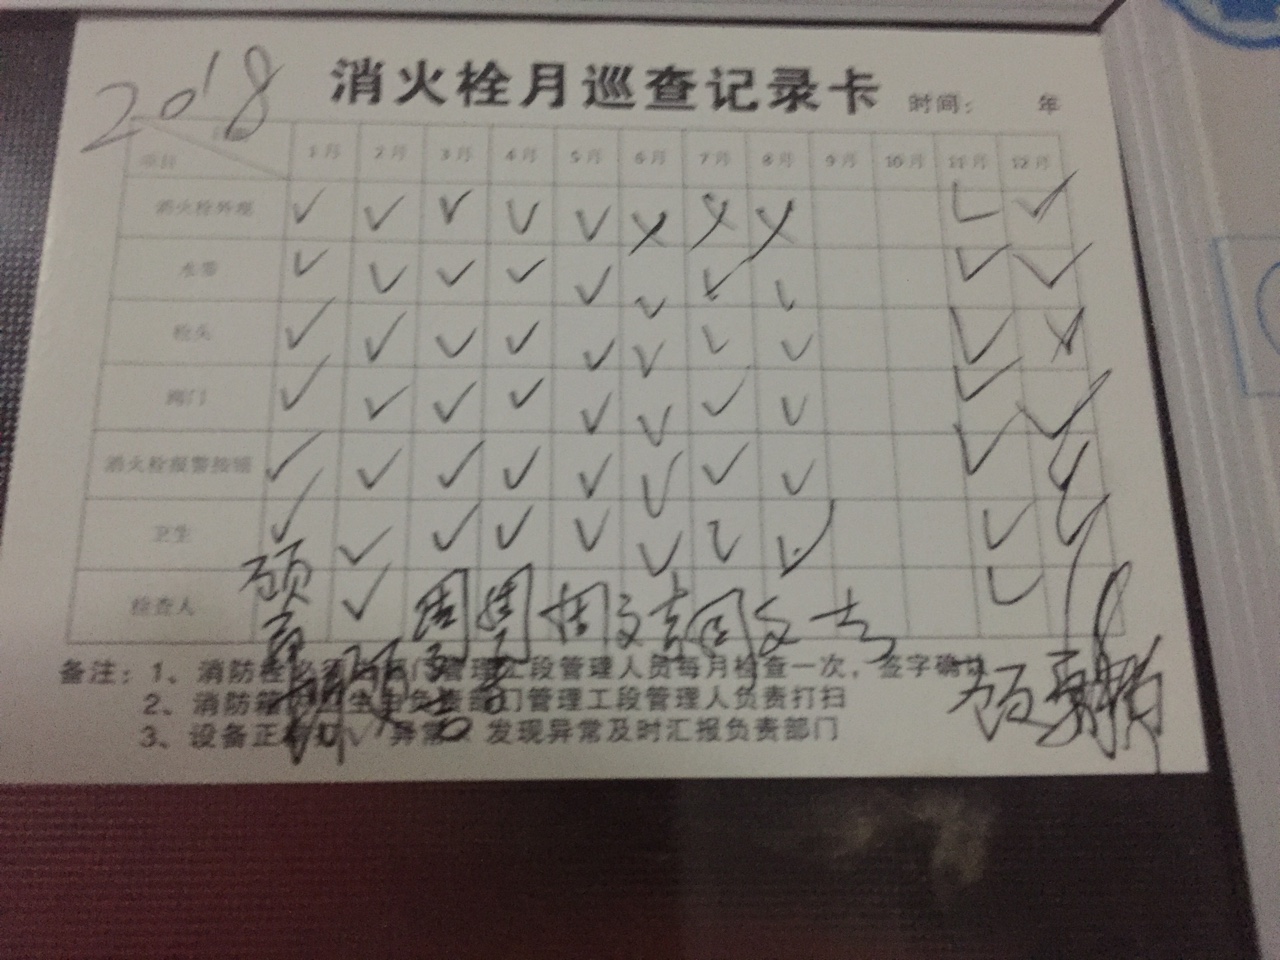 2018
消火栓月巡查记录卡 时间： 年
项目 1月 2月 3月 4月 5月 6月 7月 8月 9月 10月 11月 12月
消火栓外观 ✓ ✓ ✓ ✓ ✓ ✗ ✗ ✗ ✓ ✓
水带 ✓ ✓ ✓ ✓ ✓ ✓ ✓ ✓ ✓ ✓
栓头 ✓ ✓ ✓ ✓ ✓ ✓ ✓ ✓ ✓ ✗
阀门 ✓ ✓ ✓ ✓ ✓ ✓ ✓ ✓ ✓ ✓
消火栓报警按钮 ✓ ✓ ✓ ✓ ✓ ✓ ✓ ✓ ✓ ✓
卫生 ✓ ✓ ✓ ✓ ✓ ✓ ✓ ✓ ✓ ✓
检查人 ✓ 周 周 周文吉 周文吉 ✓
备注：1、消防栓必须 部门管理工段管理人员每月检查一次，签字确认
2、消防箱 卫生由负责部门管理工段管理人负责打扫
3、设备正常打✓ 异常 发现异常及时汇报负责部门